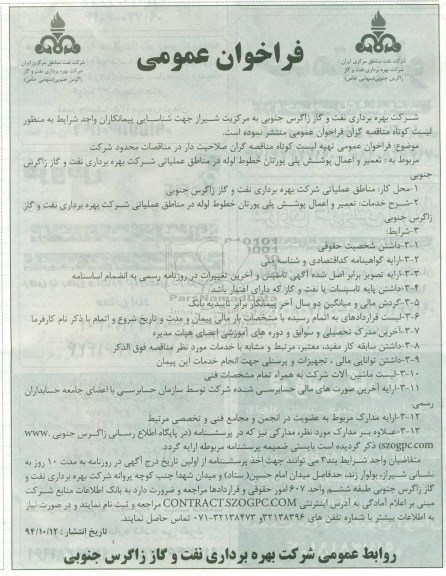 شرکت نفت مناطق مرکزی ایران
شرکت بهره برداری نفت و گاز
زاگرس جنوبی (سهامی خاص)
شرکت نفت مناطق مرکزی ایران
شرکت بهره برداری نفت و گاز
زاگرس جنوبی (سهامی خاص)
فراخوان عمومی
شرکت بهره برداری نفت و گاز زاگرس جنوبی به مرکزیت شیراز جهت شناسایی پیمانکاران واجد شرایط به منظور
لیست کوتاه مناقصه گران فراخوان عمومی منتشر نموده است.
موضوع: فراخوان عمومی تهیه لیست کوتاه مناقصه گران صلاحیت دار در مناقصات محدود شرکت
مربوط به : تعمیر و اعمال پوشش پلی یورتان خطوط لوله در مناطق عملیاتی شرکت بهره برداری نفت و گاز زاگرس
جنوبی
۱-محل کار: مناطق عملیاتی شرکت بهره برداری نفت و گاز زاگرس جنوبی
۲-شرح خدمات: تعمیر و اعمال پوشش پلی یورتان خطوط لوله در مناطق عملیاتی شرکت بهره برداری نفت و گاز
زاگرس جنوبی
۳-شرایط:
۳-۱-داشتن شخصیت حقوقی
۳-۲-ارایه گواهینامه کداقتصادی و شناسه ملی
۳-۳-ارایه تصویر برابر اصل شده آگهی تاسیس و آخرین تغییرات در روزنامه رسمی به انضمام اساسنامه
۳-۴-داشتن پایه تاسیسات یا نفت و گاز که دارای اعتبار باشد
۳-۵-گردش مالی و میانگین دو سال آخر پیمانکار برابر تاییدیه بانک
۳-۶-لیست قراردادهای به اتمام رسیده با مشخصات بار مالی پیمان و مدت و تاریخ شروع و اتمام با ذکر نام کارفرما
۳-۷-آخرین مدرک تحصیلی و سوابق و دوره های آموزشی اعضای هیات مدیره
۳-۸-داشتن سابقه کار مفید، معتبر، مرتبط و مشابه با خدمات مورد نظر مناقصه فوق الذکر
۳-۹-داشتن توانایی مالی ، تجهیزات و پرسنلی جهت انجام خدمات این پیمان
۳-۱۰-لیست ماشین آلات شرکت به همراه تمام مشخصات فنی
۳-۱۱-ارایه آخرین صورت های مالی حسابرسی شده شرکت توسط سازمان حسابرسی یا اعضای جامعه حسابداران
رسمی
۳-۱۲-ارایه مدارک مربوط به عضویت در انجمن و مجامع فنی و تخصصی مرتبط
۳-۱۳-علاوه بر مدارک مورد نظر، مدارکی نیز که در پرسشنامه (در پایگاه اطلاع رسانی زاگرس جنوبی www.
szogpc.com) ذکر گردیده است بایستی ضمیمه پرسشنامه مربوطه ارایه گردد.
متقاضیان واجد شرایط بند۳ می توانند جهت اخذ پرسشنامه از اولین تاریخ درج آگهی در روزنامه به مدت ۱۰ روز به
نشانی شیراز، بولوار زند، حدفاصل میدان امام حسین( ستاد) و میدان شهدا جنب کوچه پروانه شرکت بهره برداری نفت و
گاز زاگرس جنوبی طبقه ششم واحد ۶۰۷ امور حقوقی و قراردادها مراجعه و ضرورت دارد به بانک اطلاعات منابع شرکت
مبنی بر اعلام آمادگی به آدرس اینترنتی CONTRACT.SZOGPC.COM مراجعه و ثبت نام نمایند و در صورت نیاز
به اطلاعات بیشتر با شماره تلفن های ۳۲۱۳۸۳۹۶و ۳۲۱۳۸۴۷۲-۰۷۱ تماس حاصل نمایند.
تاریخ انتشار : ۹۴/۱۰/۱۲
روابط عمومی شرکت بهره برداری نفت و گاز زاگرس جنوبی
ParsNamadData